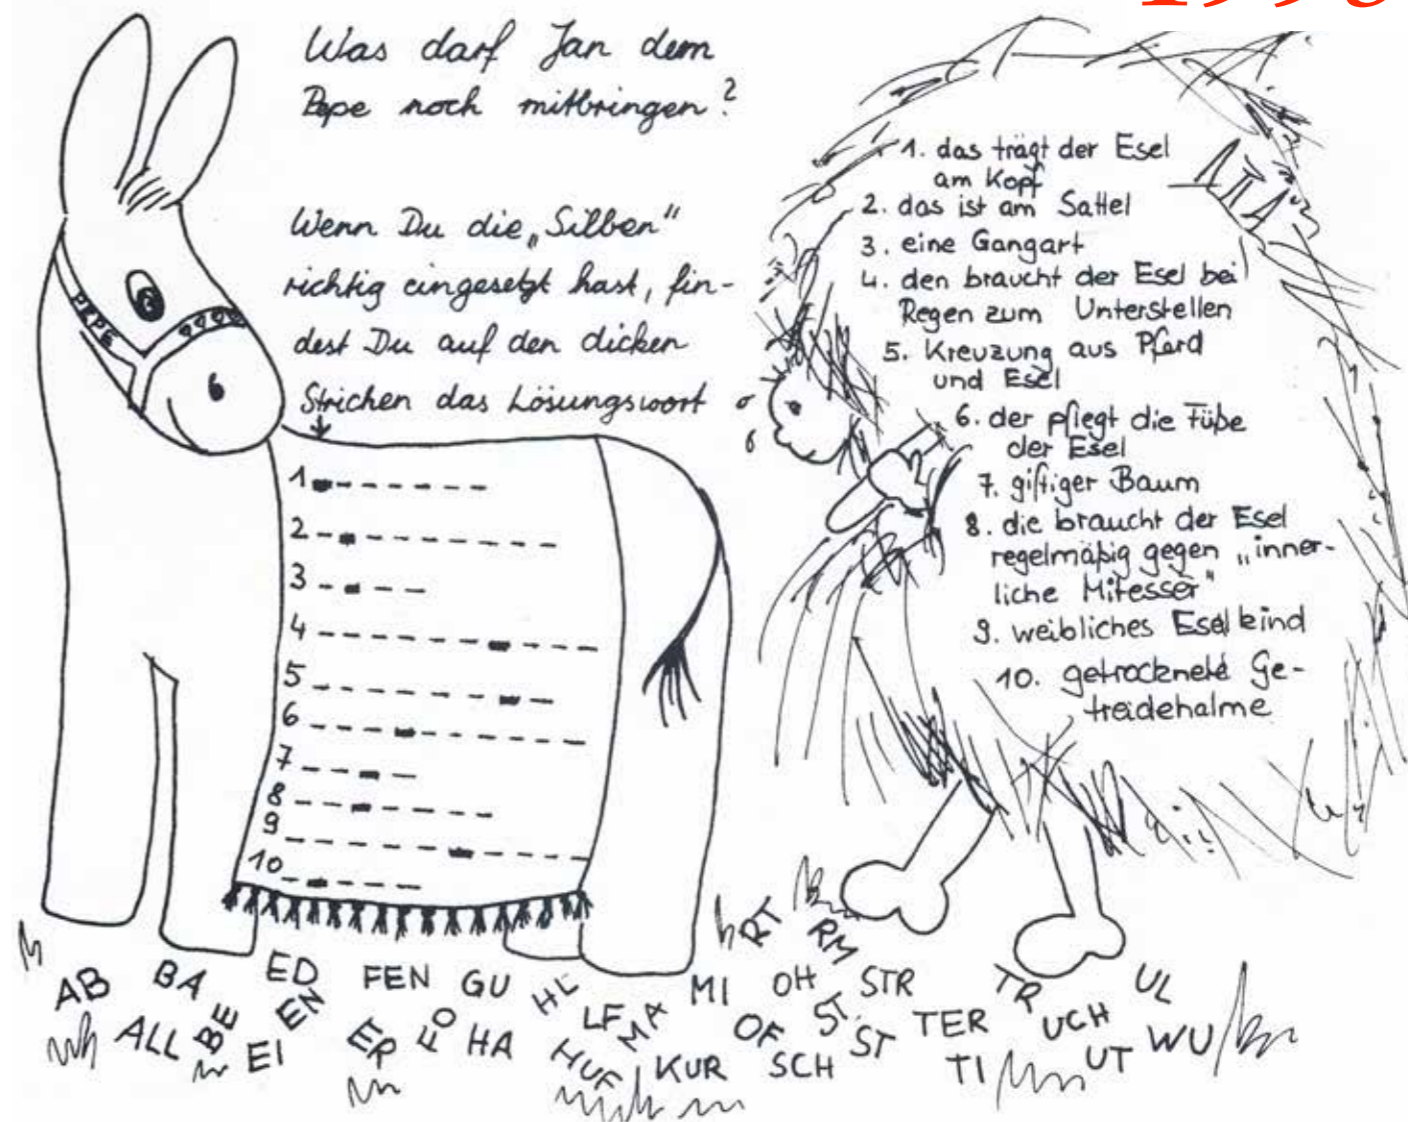 1998
Was darf Jan dem
Pepe noch mitbringen?
Wenn Du die „Silben“
richtig eingesetzt hast, fin-
dest Du auf den dicken
Strichen das Lösungswort
PEPE
1
2
3
4
5
6
7
8
9
10
1. das trägt der Esel
am Kopf
2. das ist am Sattel
3. eine Gangart
4. den braucht der Esel bei
Regen zum Unterstellen
5. Kreuzung aus Pferd
und Esel
6. der pflegt die Füße
der Esel
7. giftiger Baum
8. die braucht der Esel
regelmäßig gegen „inner-
liche Mitesser“
9. weibliches Eselkind
10. getrocknete Ge-
treidehalme
AB BA ED FEN GU HL MI RT RM OH STR TR UL
ALL BE EI EN ER FO HA HUF LF MA KUR OF SCH ST ST TER TI UCH UT WU